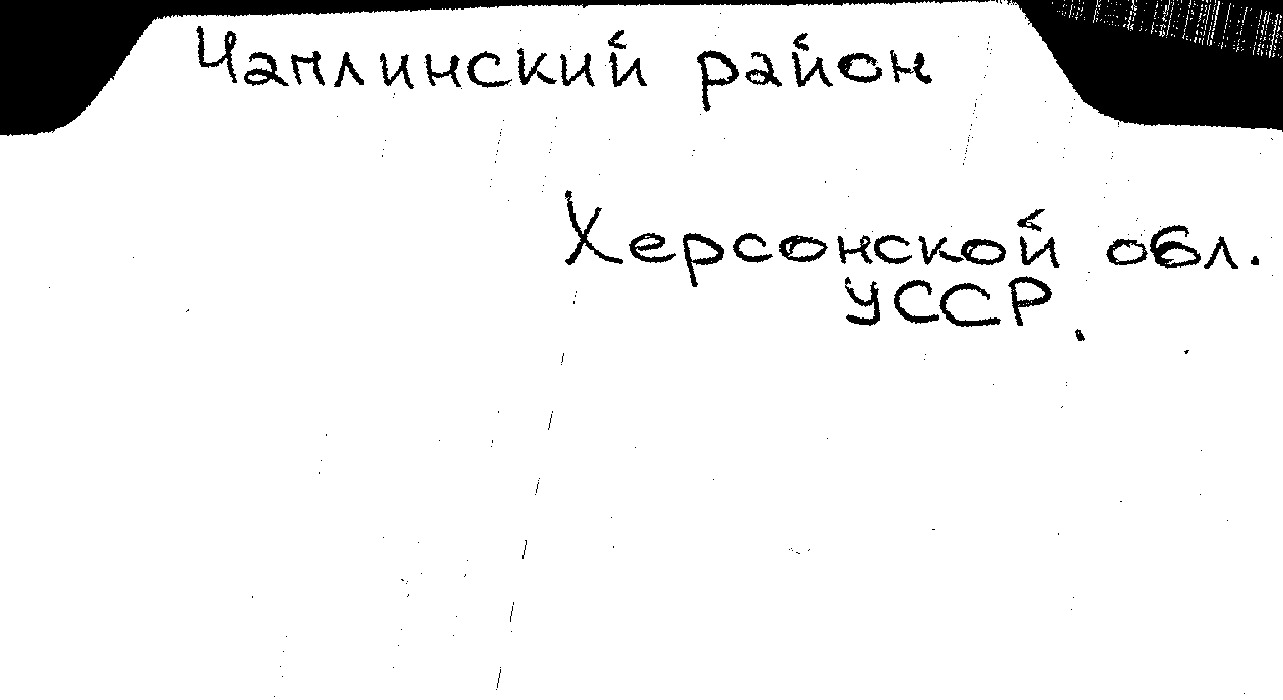 Чаплинский район
Херсонской обл.
УССР.